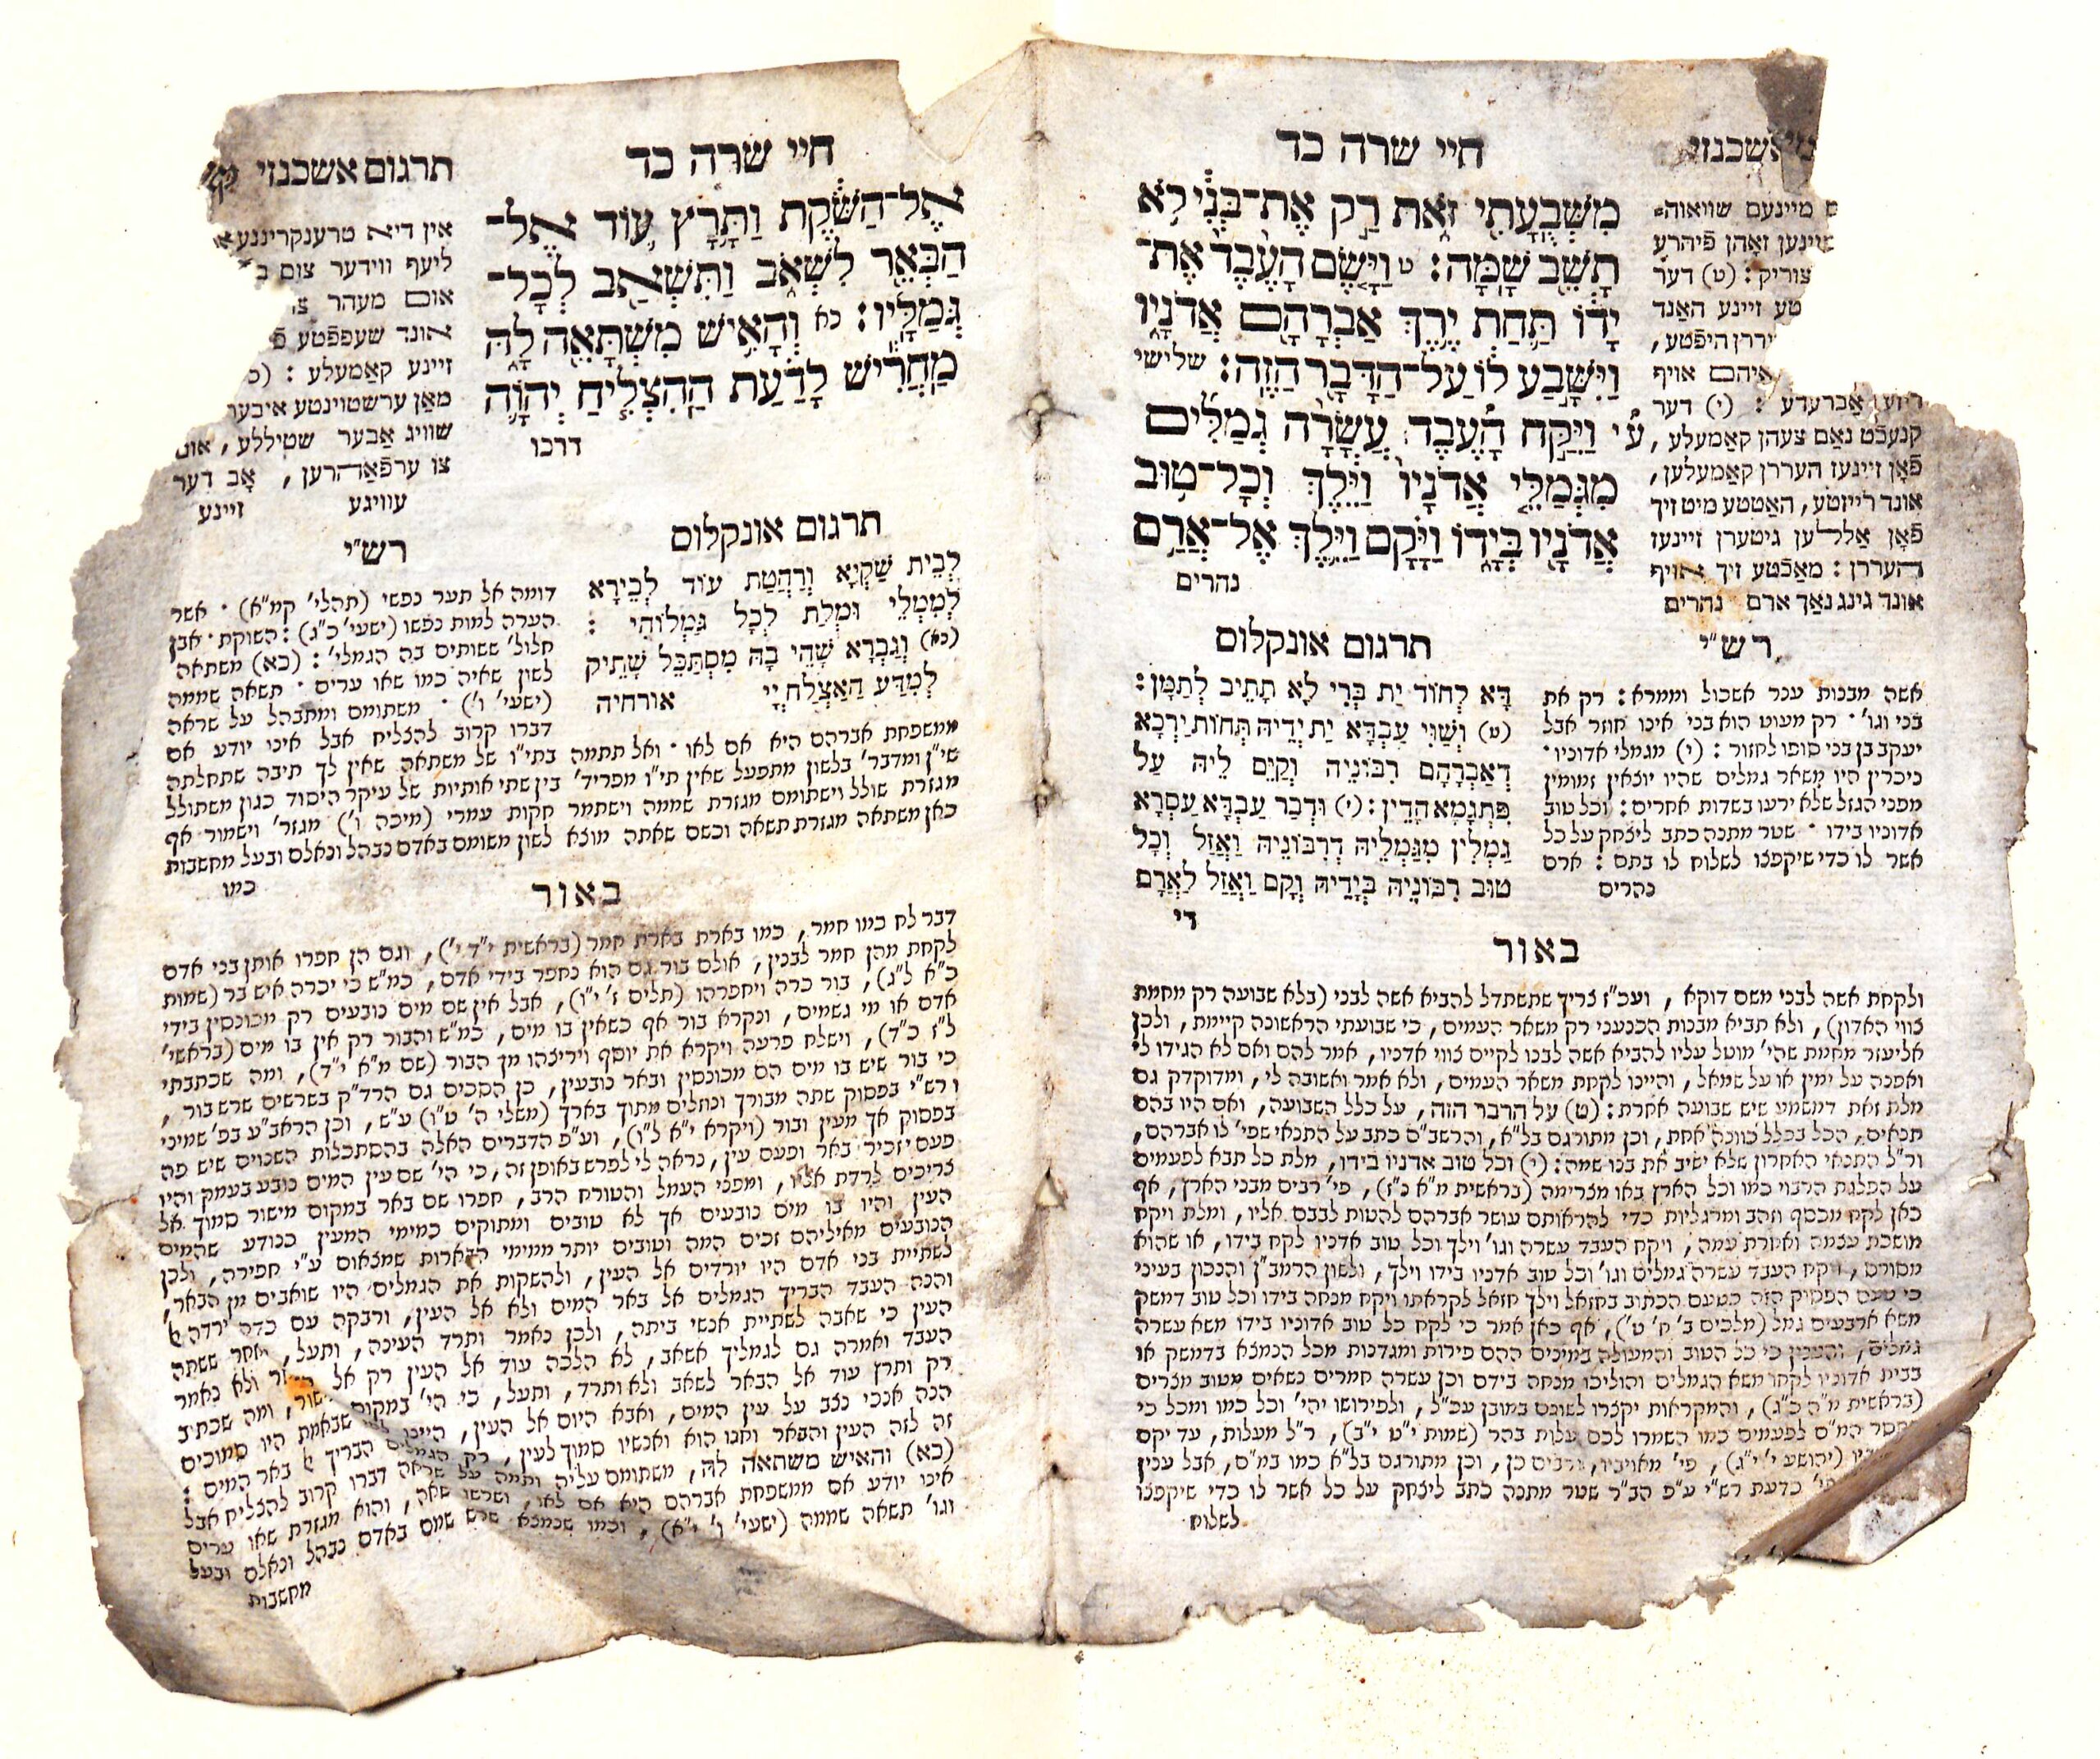 חיי שרה כד
אשכנזי
מִשְּׁבֻעָתִי זֹאת רַק אֶת־בְּנִי לֹא
תָשֵׁב שָׁמָּה׃ ט וַיָּשֶׂם הָעֶבֶד אֶת־
יָדוֹ תַּחַת יֶרֶךְ אַבְרָהָם אֲדֹנָיו
וַיִּשָּׁבַע לוֹ עַל־הַדָּבָר הַזֶּה׃ שלישי
י וַיִּקַּח הָעֶבֶד עֲשָׂרָה גְמַלִּים
מִגְּמַלֵּי אֲדֹנָיו וַיֵּלֶךְ וְכָל־טוּב
אֲדֹנָיו בְּיָדוֹ וַיָּקָם וַיֵּלֶךְ אֶל־אֲרַם
נהרים
מיינעם שוואוה־
מיינען זאָהן פֿיהרע
צוריק : (ט) דער
זיינע האַנד
היפֿטע,
איהם אויף
אַברעדע : (י) דער
קנעכֿט נאַם צעהן קאַמעלע,
פֿאָן זיינעז העררן קאַמעלען,
אונד רייזטע, האַטטע מיט זיך
פֿאָן אַללען גיטערן זיינעז
העררן : מאַכֿטע זיך אויף
אונד גינג נאַך ארם נהרים
תרגום אונקלוס
דָּא לְחוֹד יַת בְּרִי לָא תָתִיב לְתַמָּן׃
(ט) וְשַׁוִּי עַבְדָּא יַת יְדֵיהּ תְּחוֹת יַרְכָא
דְאַבְרָהָם רִבּוֹנֵיהּ וְקַיֵּם לֵיהּ עַל
פִּתְגָמָא הָדֵין׃ (י) וּדְבַר עַבְדָּא עַסְרָא
גַמְלִין מִגַּמְלֵיהּ דְרִבּוֹנֵיהּ וַאֲזַל וְכָל
טוּב רִבּוֹנֵיהּ בִּידֵיהּ וְקָם וַאֲזַל לַאֲרָם
די
רש״י
אשה מבנות ענר אשכול וממרא : רק את
בני וגו׳ . רק מעוט הוא בני אינו חוזר אבל
יעקב בן בני סופו לחזור : (י) מגמלי אדוניו .
ניכרין היו משאר גמלים שהיו יוצאין זמומין
מפני הגזל שלא ירעו בשדות אחרים : וכל טוב
אדוניו בידו . שטר מתנה כתב ליצחק על כל
אשר לו כדי שיקפצו לשלוח לו בתם : ארם
נהרים
באור
ולקחת אשה לבני משם דוקא, ועכ״ז צריך שתשתדל להביא אשה לבני (בלא שבועה רק מחמת
צווי האדון), ולא תביא מבנות הכנעני רק משאר העמים, כי שבועתי הראשונה קיימת, ולכן
אליעזר מחמת שהי׳ מוטל עליו להביא אשה לבנו לקיים צווי אדניו, אמר להם ואם לא הגידו לי
ואפנה על ימין או על שמאל, והיינו לקחת משאר העמים, ולא אמר ואשובה לי, ומדוקדק גם
מלת זאת דמשמע שיש שבועה אחרת : (ט) על הדבר הזה, על כלל השבועה, ואם היו בהם
תנאים, הכל בכלל כוונה אחת, וכן מתורגם בל״א, והרשב״ם כתב על התנאי שפי׳ לו אברהם,
ור״ל התנאי האחרון שלא ישיב את בנו שמה : (י) וכל טוב אדניו בידו, מלת כל תבא לפעמים
על הפלגת הרבוי כמו וכל הארץ באו מצרימה (בראשית מ״א נ״ז), פי׳ רבים מבני הארץ, אף
כאן לקח מכסף וזהב ומרגליות כדי להראותם עושר אברהם להטות לבבם אליו, ומלת ויקח
מושכת עצמה ואחרת עמה, ויקח העבד עשרה וגו׳ וילך וכל טוב אדניו לקח בידו, או שהוא
מסורס, ויקח העבד עשרה גמלים וגו׳ וכל טוב אדניו בידו וילך, ולשון הרמב״ן והנכון בעיני
כי טעם הפסוק הזה כטעם הכתוב בחזאל וילך חזאל לקראתו ויקח מנחה בידו וכל טוב דמשק
משא ארבעים גמל (מלכים ב׳ ח׳ ט׳), אף כאן אמר כי לקח כל טוב אדוניו בידו משא עשרה
גמלים, והענין כי כל הטוב והמעולה במינים ההם פירות ומגדנות מכל הנמצא בדמשק או
בבית אדוניו לקחו משא הגמלים והוליכו מנחה בידם וכן עשרה חמרים נשאים מטוב מצרים
(בראשית מ״ה כ״ג), והמקראות יקצרו לשונם במובן עכ״ל, ולפירושו יהי׳ וכל כמו ומכל כי
תחסר המ״ם לפעמים כמו השמרו לכם עלות בהר (שמות י״ט י״ב), ר״ל מעלות, עד יקם
(יהושע י׳ י״ג), פי׳ מאויביו, ורבים כן, וכן מתורגם בל״א כמו במ״ם, אבל ענין
כדעת רש״י ע״פ הב״ר שטר מתנה כתב ליצחק על כל אשר לו כדי שיקפצו
לשלוח
חיי שרה כד
תרגום אשכנזי
אֶל־הַשֹּׁקֶת וַתָּרָץ עוֹד אֶל־
הַבְּאֵר לִשְׁאֹב וַתִּשְׁאַב לְכָל־
גְּמַלָּיו׃ כא וְהָאִישׁ מִשְׁתָּאֵה לָהּ
מַחֲרִישׁ לָדַעַת הַהִצְלִיחַ יְהוָֹה
דרכו
אין דיא טרענקרינגע
ליעף ווידער צום
אום מעהר
אונד שעפפֿטע
זיינע קאַמעלע :
מאַן ערשטוינטע איבער
שוויג אַבער שטיללע, אונ
צו ערפֿאַהרען, אָב דער
עוויגע זיינע
תרגום אונקלוס
לְבֵית שַׁקְיָא וְרָהֲטַת עוֹד לְבֵירָא
לְמִמְלֵי וּמְלַת לְכָל גַּמְלוֹהִי :
(כא) וְגַבְרָא שָׁהֵי בָהּ מִסְתַּכֵּל שָׁתֵיק
לְמִדַּע הַאַצְלַח יְיָ אורחיה
רש״י
דומה אל תער נפשי (תהלי׳ קמ״א) . אשר
הערה למות נפשו (ישעי׳ נ״ג) : השוקת . אבן
חלול׳ ששותים בה הגמלי׳ : (כא) משתאה
לשון שאיה כמו שאו ערים . תשאה שממה
(ישעי׳ ו׳) . משתומם ומתבהל על שראה
דברו קרוב להצליח אבל אינו יודע אם
ממשפחת אברהם היא אם לאו . ואל תתמה בתי״ו של משתאה שאין לך תיבה שתחלתה
שי״ן ומדבר׳ בלשון מתפעל שאין תי״ו מפריד׳ בין שתי אותיות של עיקר היסוד כגון משתולל
מגזרת שולל וישתומם מגזרת שממה וישתמר חקות עמרי (מיכה ו׳) מגזר׳ וישמור אף
כאן משתאה מגזרת תשאה וכשם שאתה מוצא לשון משומם באדם נבהל ונאלם ובעל מחשבות
כמו
באור
דבר לח כמו חמר, כמו בארת בארת חמר (בראשית י״ד י׳), וגם הן חפרו אותן בני אדם
לקחת מהן חמר לבנין, אולם בור גם הוא נחפר בידי אדם, כמ״ש כי יכרה איש בר (שמות
כ״א ל״ג), בור כרה ויחפרהו (תלים ז׳ י״ו), אבל אין שם מים נובעים רק מכונסין בידי
אדם או מי גשמים, ונקרא בור אף כשאין בו מים, כמ״ש והבור רק אין בו מים (בראשי׳
ל״ז כ״ד), וישלח פרעה ויקרא את יוסף ויריצהו מן הבור (שם מ״א י״ד), ומה שכתבתי
כי בור שיש בו מים הם מכונסין ובאר נובעין, כן הסכים גם הרד״ק בשרשים שרש בור,
ורש״י בפסוק שתה מבורך ונוזלים מתוך בארך (משלי ה׳ ט״ו) ע״ש, וכן הראב״ע בפ׳ שמיני
בפסוק אך מעין ובור (ויקרא י״א ל״ו), וע״פ הדברים האלה בהסתכלות השנוים שיש פה
פעם יזכיר באר ופעם עין, נראה לי לפרש באופן זה, כי הי׳ שם עין המים נובע בעמק והיו
צריכים לרדת אליו, ומפני העמל והטורח הרב, חפרו שם באר במקום מישור סמוך אל
העין והיו בו מים נובעים אך לא טובים ומתוקים כמימי המעין כנודע שהמים
הנובעים מאיליהם זכים המה וטובים יותר ממימי הבארות שמצאום ע״י חפירה, ולכן
לשתיית בני אדם היו יורדים אל העין, ולהשקות את הגמלים היו שואבים מן הבאר,
והנה העבד הבריך הגמלים אל באר המים ולא אל העין, ורבקה עם כדה ירדה
העין כי שאבה לשתיית אנשי ביתה, ולכן נאמר ותרד העינה, ותעל, אחר ששתה
העבד ואמרה גם לגמליך אשאב, לא הלכה עוד אל העין רק אל ולא נאמר
רק ותרץ עוד אל הבאר לשאב ולא ותרד, ותעל, כי הי׳ במקום מישור, ומה שכתיב
הנה אנכי נצב על עין המים, ואבא היום אל העין, היינו לפי שבאמת היו סמוכים
זה לזה העין והבאר וחנו הוא ואנשיו סמוך לעין, רק הגמלים הבריך באר המים :
(כא) והאיש משתאה לה, משתומם עליה ותמה על שראה דברו קרוב להצליח אבל
אינו יודע אם ממשפחת אברהם היא אם לאו, ושרשו שאה, והוא מגזרת שאו ערים
וגו׳ תשאה שממה (ישעי׳ ו׳ י״א), וכמו שנמצא שרש שמם באדם נבהל ונאלם ובעל
מחשבות